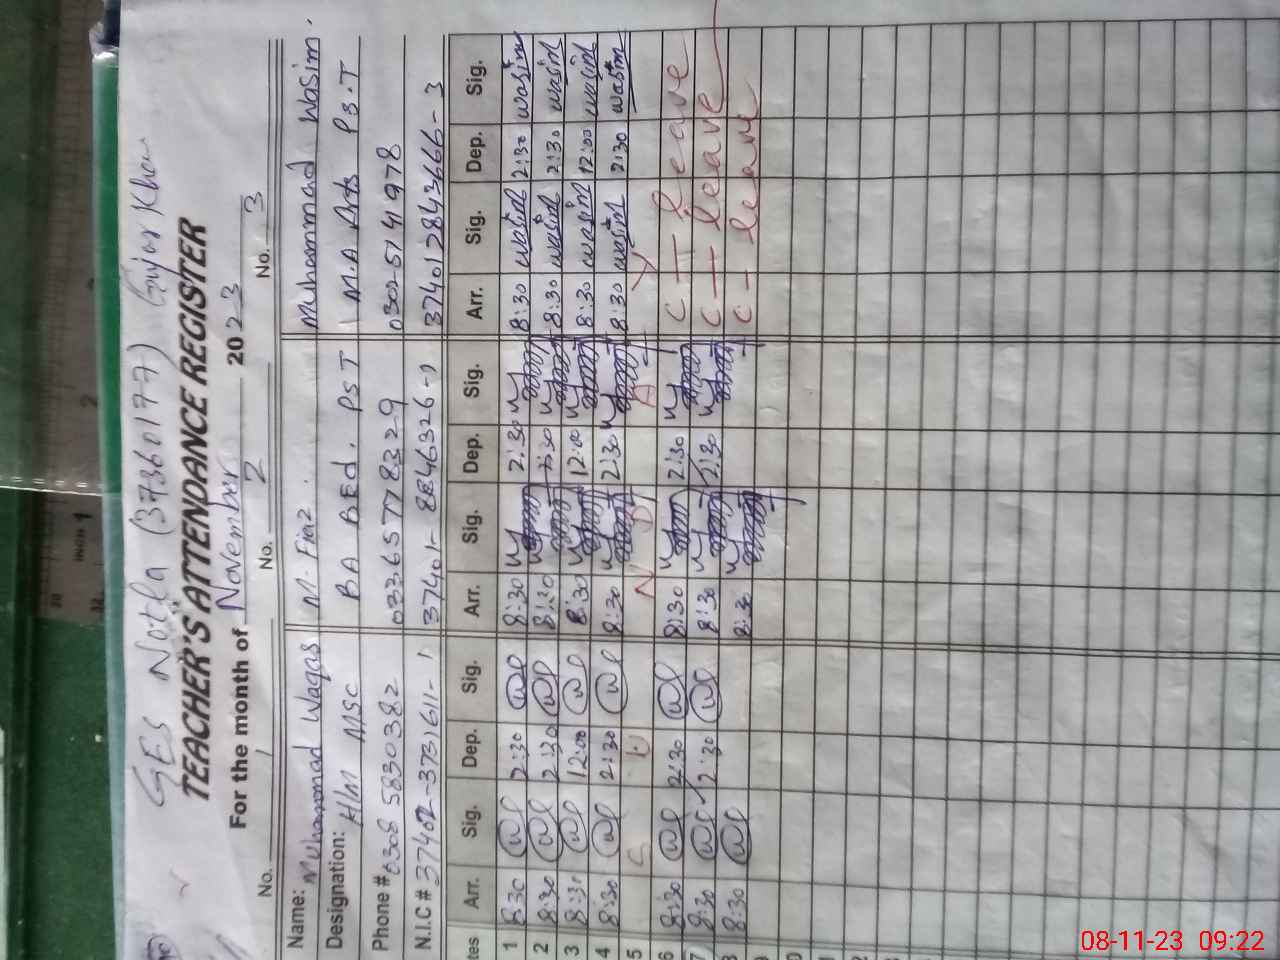 GES Notla (37360177) Gujar Khan
TEACHER'S ATTENDANCE REGISTER
For the month of November 2023
No. 1 No. 2 No. 3
Name: Muhammad Waqas M. Fiaz. Muhammad Wasim.
Designation: HM MSc BA BEd. PST M.A Arts PST
Phone # 0308 5830382 03365778329 0302-5141978
N.I.C # 37402-3731611-1 37401-8846326-1 374012843666-3
tes Arr. Sig. Dep. Sig. Arr. Sig. Dep. Sig. Arr. Sig. Dep. Sig.
1 8:30 2:30 8:30 2:30 8:30 wasim 2:30 wasim
2 8:30 2:30 8:30 2:30 8:30 wasim 2:30 wasim
3 8:30 12:00 8:30 12:00 8:30 wasim 12:00 wasim
4 8:30 2:30 8:30 2:30 8:30 wasim 2:30 wasim
5 S U N D A Y
6 8:30 2:30 8:30 2:30 C - leave
7 8:30 2:30 8:30 2:30 C - leave
8 8:30 8:30 C - leave
9
10
11
2
3
4
5
6
INCH 1 2
08-11-23 09:22